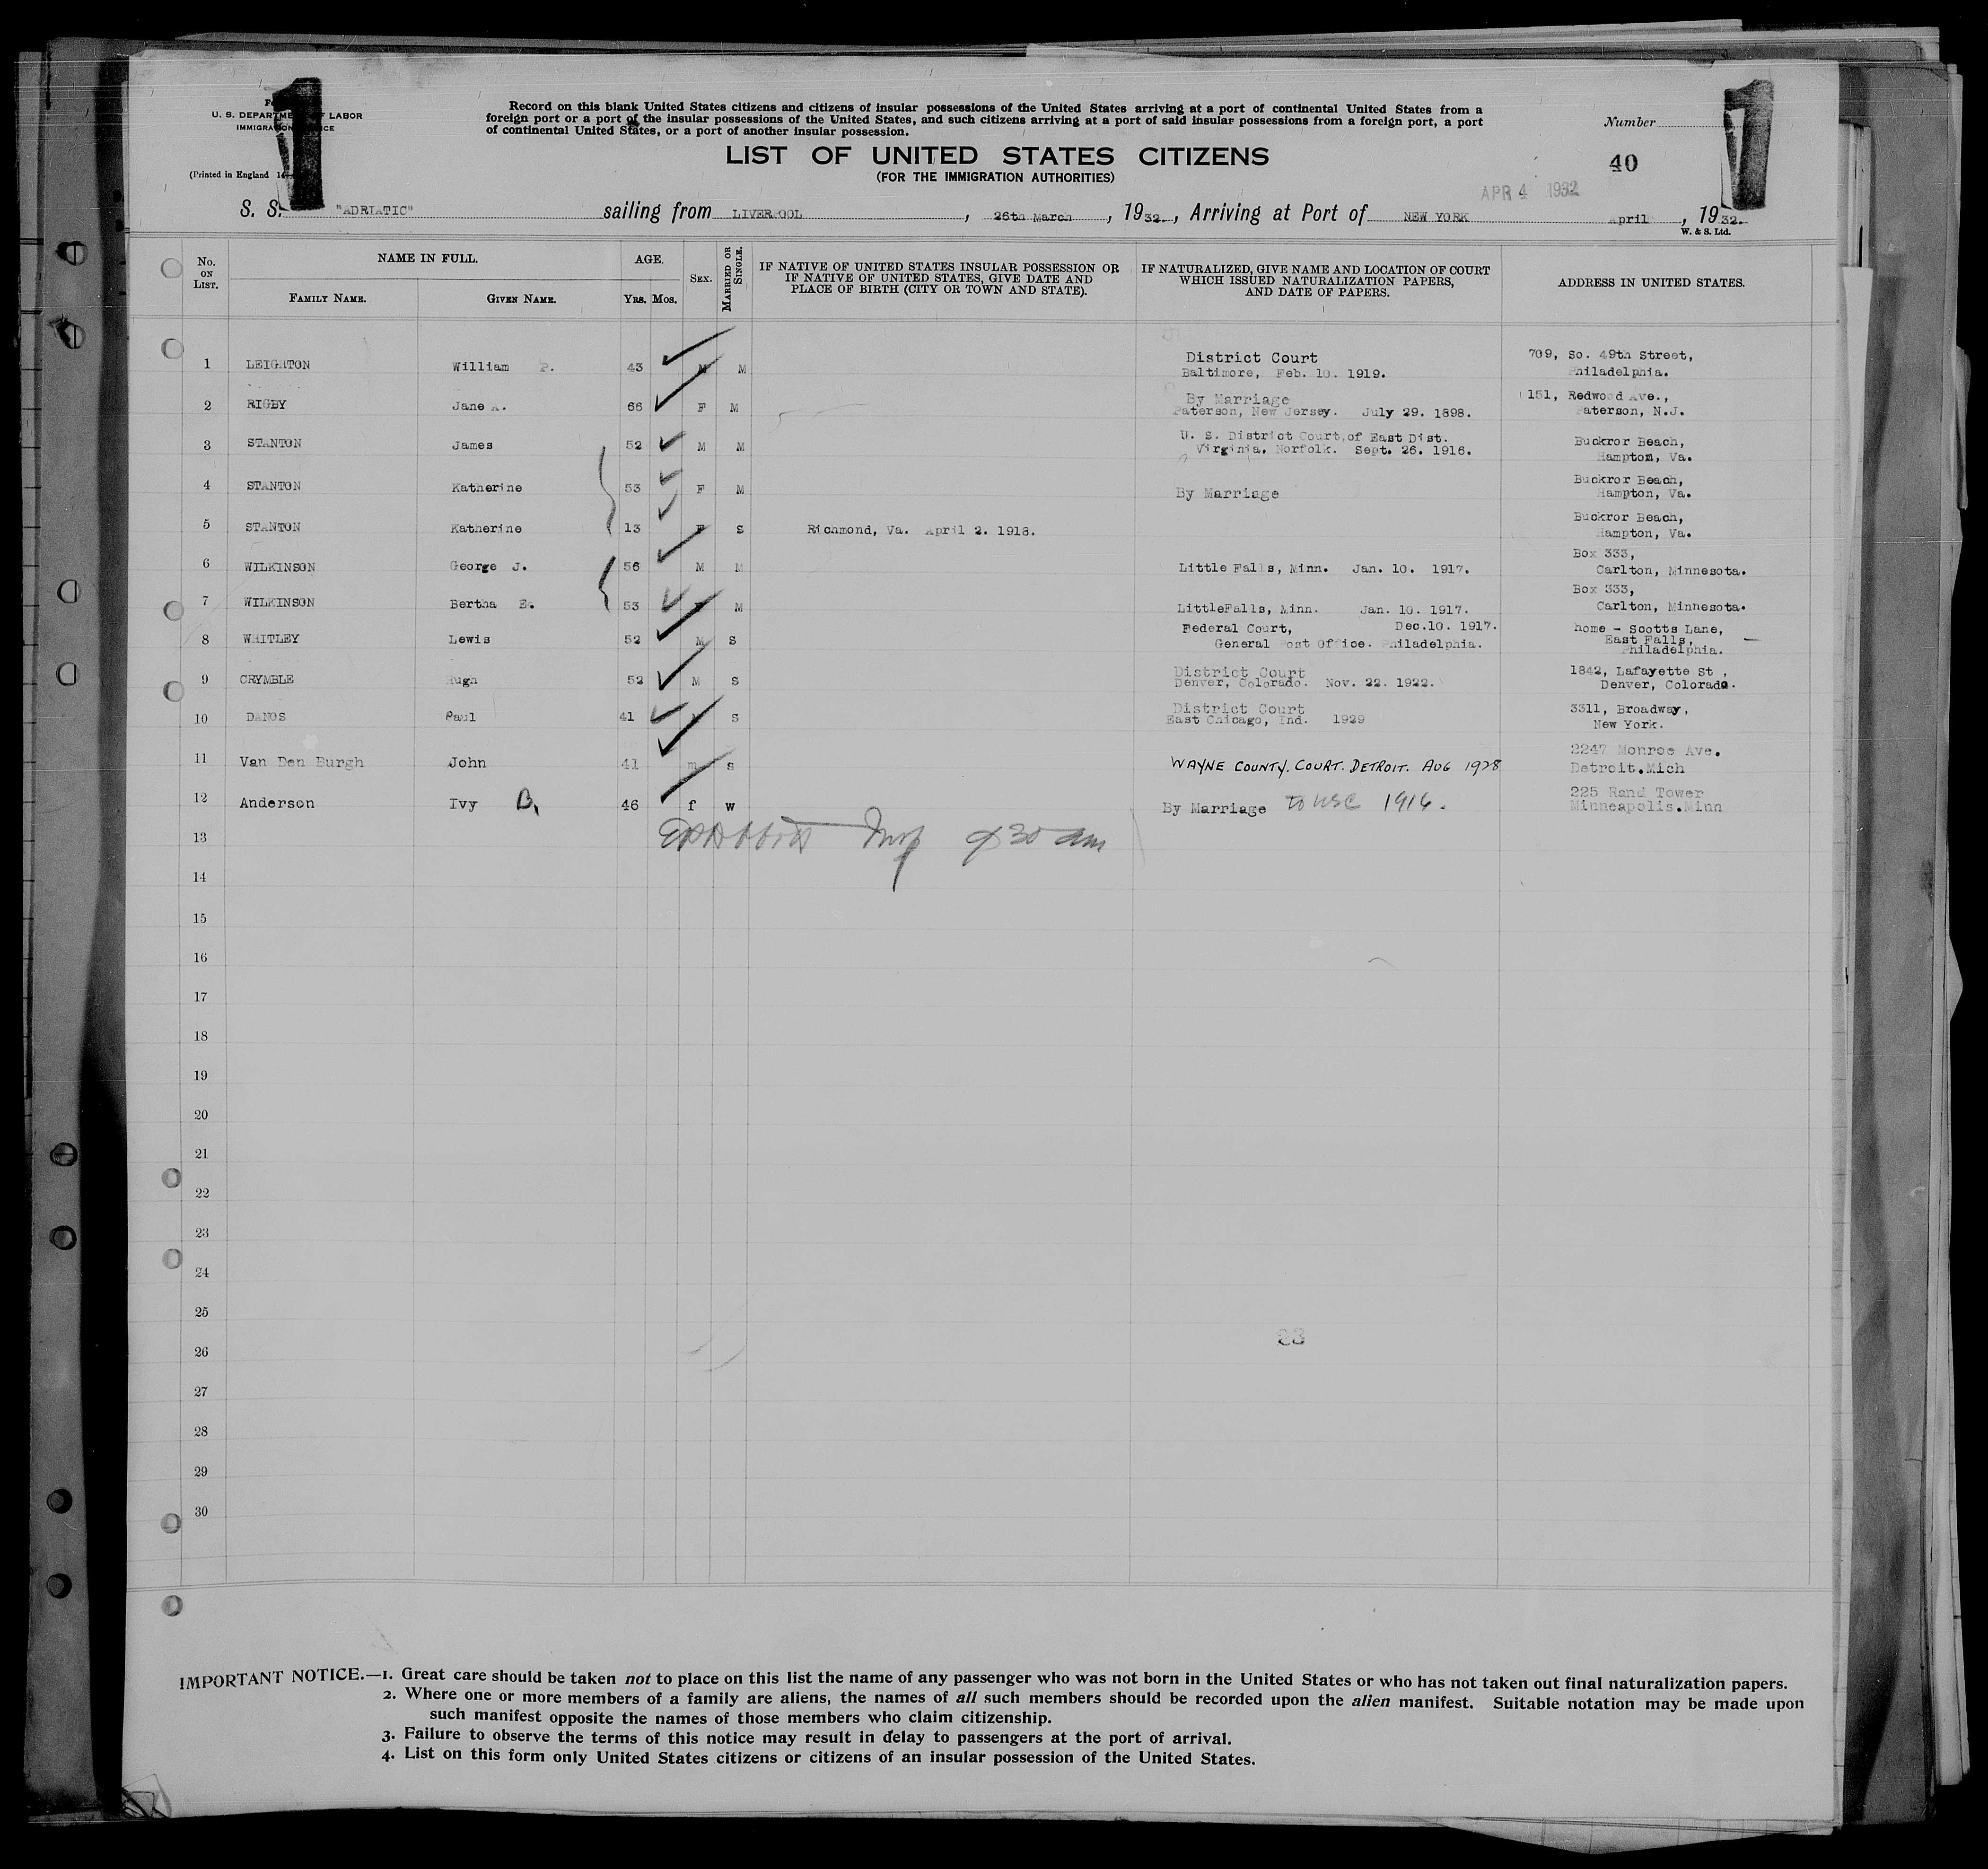 1
1
U. S. DEPARTMENT OF LABOR
IMMIGRATION SERVICE
(Printed in England
Record on this blank United States citizens and citizens of insular possessions of the United States arriving at a port of continental United States from a
foreign port or a port of the insular possessions of the United States, and such citizens arriving at a port of said insular possessions from a foreign port, a port
of continental United States, or a port of another insular possession.
Number
LIST OF UNITED STATES CITIZENS
(FOR THE IMMIGRATION AUTHORITIES)
40
APR 4 1932
S. S. "ADRIATIC" sailing from LIVERPOOL, 26th March, 1932., Arriving at Port of NEW YORK april, 1932.
W. & S. Ltd.
No. ON LIST. NAME IN FULL. AGE. SEX. MARRIED OR SINGLE. IF NATIVE OF UNITED STATES INSULAR POSSESSION OR IF NATIVE OF UNITED STATES, GIVE DATE AND PLACE OF BIRTH (CITY OR TOWN AND STATE). IF NATURALIZED, GIVE NAME AND LOCATION OF COURT WHICH ISSUED NATURALIZATION PAPERS, AND DATE OF PAPERS. ADDRESS IN UNITED STATES.
FAMILY NAME. GIVEN NAME. YRS. MOS.
1 LEIGHTON William P. 43 M M District Court Baltimore, Feb. 10. 1919. 709, So. 49th Street, Philadelphia.
2 RIGBY Jane A. 66 F M By Marriage Paterson, New Jersey. July 29. 1898. 151, Redwood Ave., Paterson, N.J.
3 STANTON James 52 M M U. S. District Court, of East Dist. Virginia. Norfolk. Sept. 26. 1916. Buckror Beach, Hampton, Va.
4 STANTON Katherine 53 F M By Marriage Buckror Beach, Hampton, Va.
5 STANTON Katherine 13 F S Richmond, Va. April 2. 1918. Buckror Beach, Hampton, Va.
6 WILKINSON George J. 56 M M Little Falls, Minn. Jan. 10. 1917. Box 333, Carlton, Minnesota.
7 WILKINSON Bertha E. 53 F M LittleFalls, Minn. Jan. 10. 1917. Box 333, Carlton, Minnesota.
8 WHITLEY Lewis 52 M S Federal Court, Dec.10. 1917. General Post Office. Philadelphia. home - Scotts Lane, East Falls, Philadelphia.
9 CRYMBLE Hugh 52 M S District Court Denver, Colorado. Nov. 22. 1922. 1842, Lafayette St , Denver, Colorado.
10 DANOS Paul 41 M S District Court East Chicago, Ind. 1929 3311, Broadway, New York.
11 Van Den Burgh John 41 m s WAYNE COUNTY. COURT. DETROIT. AUG 1928 2247 Monroe Ave. Detroit.Mich
12 Anderson Ivy B. 46 f w By Marriage to USC 1916. 225 Rand Tower Minneapolis.Minn
13 Insp 930 am
14
15
16
17
18
19
20
21
22
23
24
25
26
27
28
29
30
IMPORTANT NOTICE.—1. Great care should be taken not to place on this list the name of any passenger who was not born in the United States or who has not taken out final naturalization papers.
2. Where one or more members of a family are aliens, the names of all such members should be recorded upon the alien manifest. Suitable notation may be made upon
such manifest opposite the names of those members who claim citizenship.
3. Failure to observe the terms of this notice may result in delay to passengers at the port of arrival.
4. List on this form only United States citizens or citizens of an insular possession of the United States.